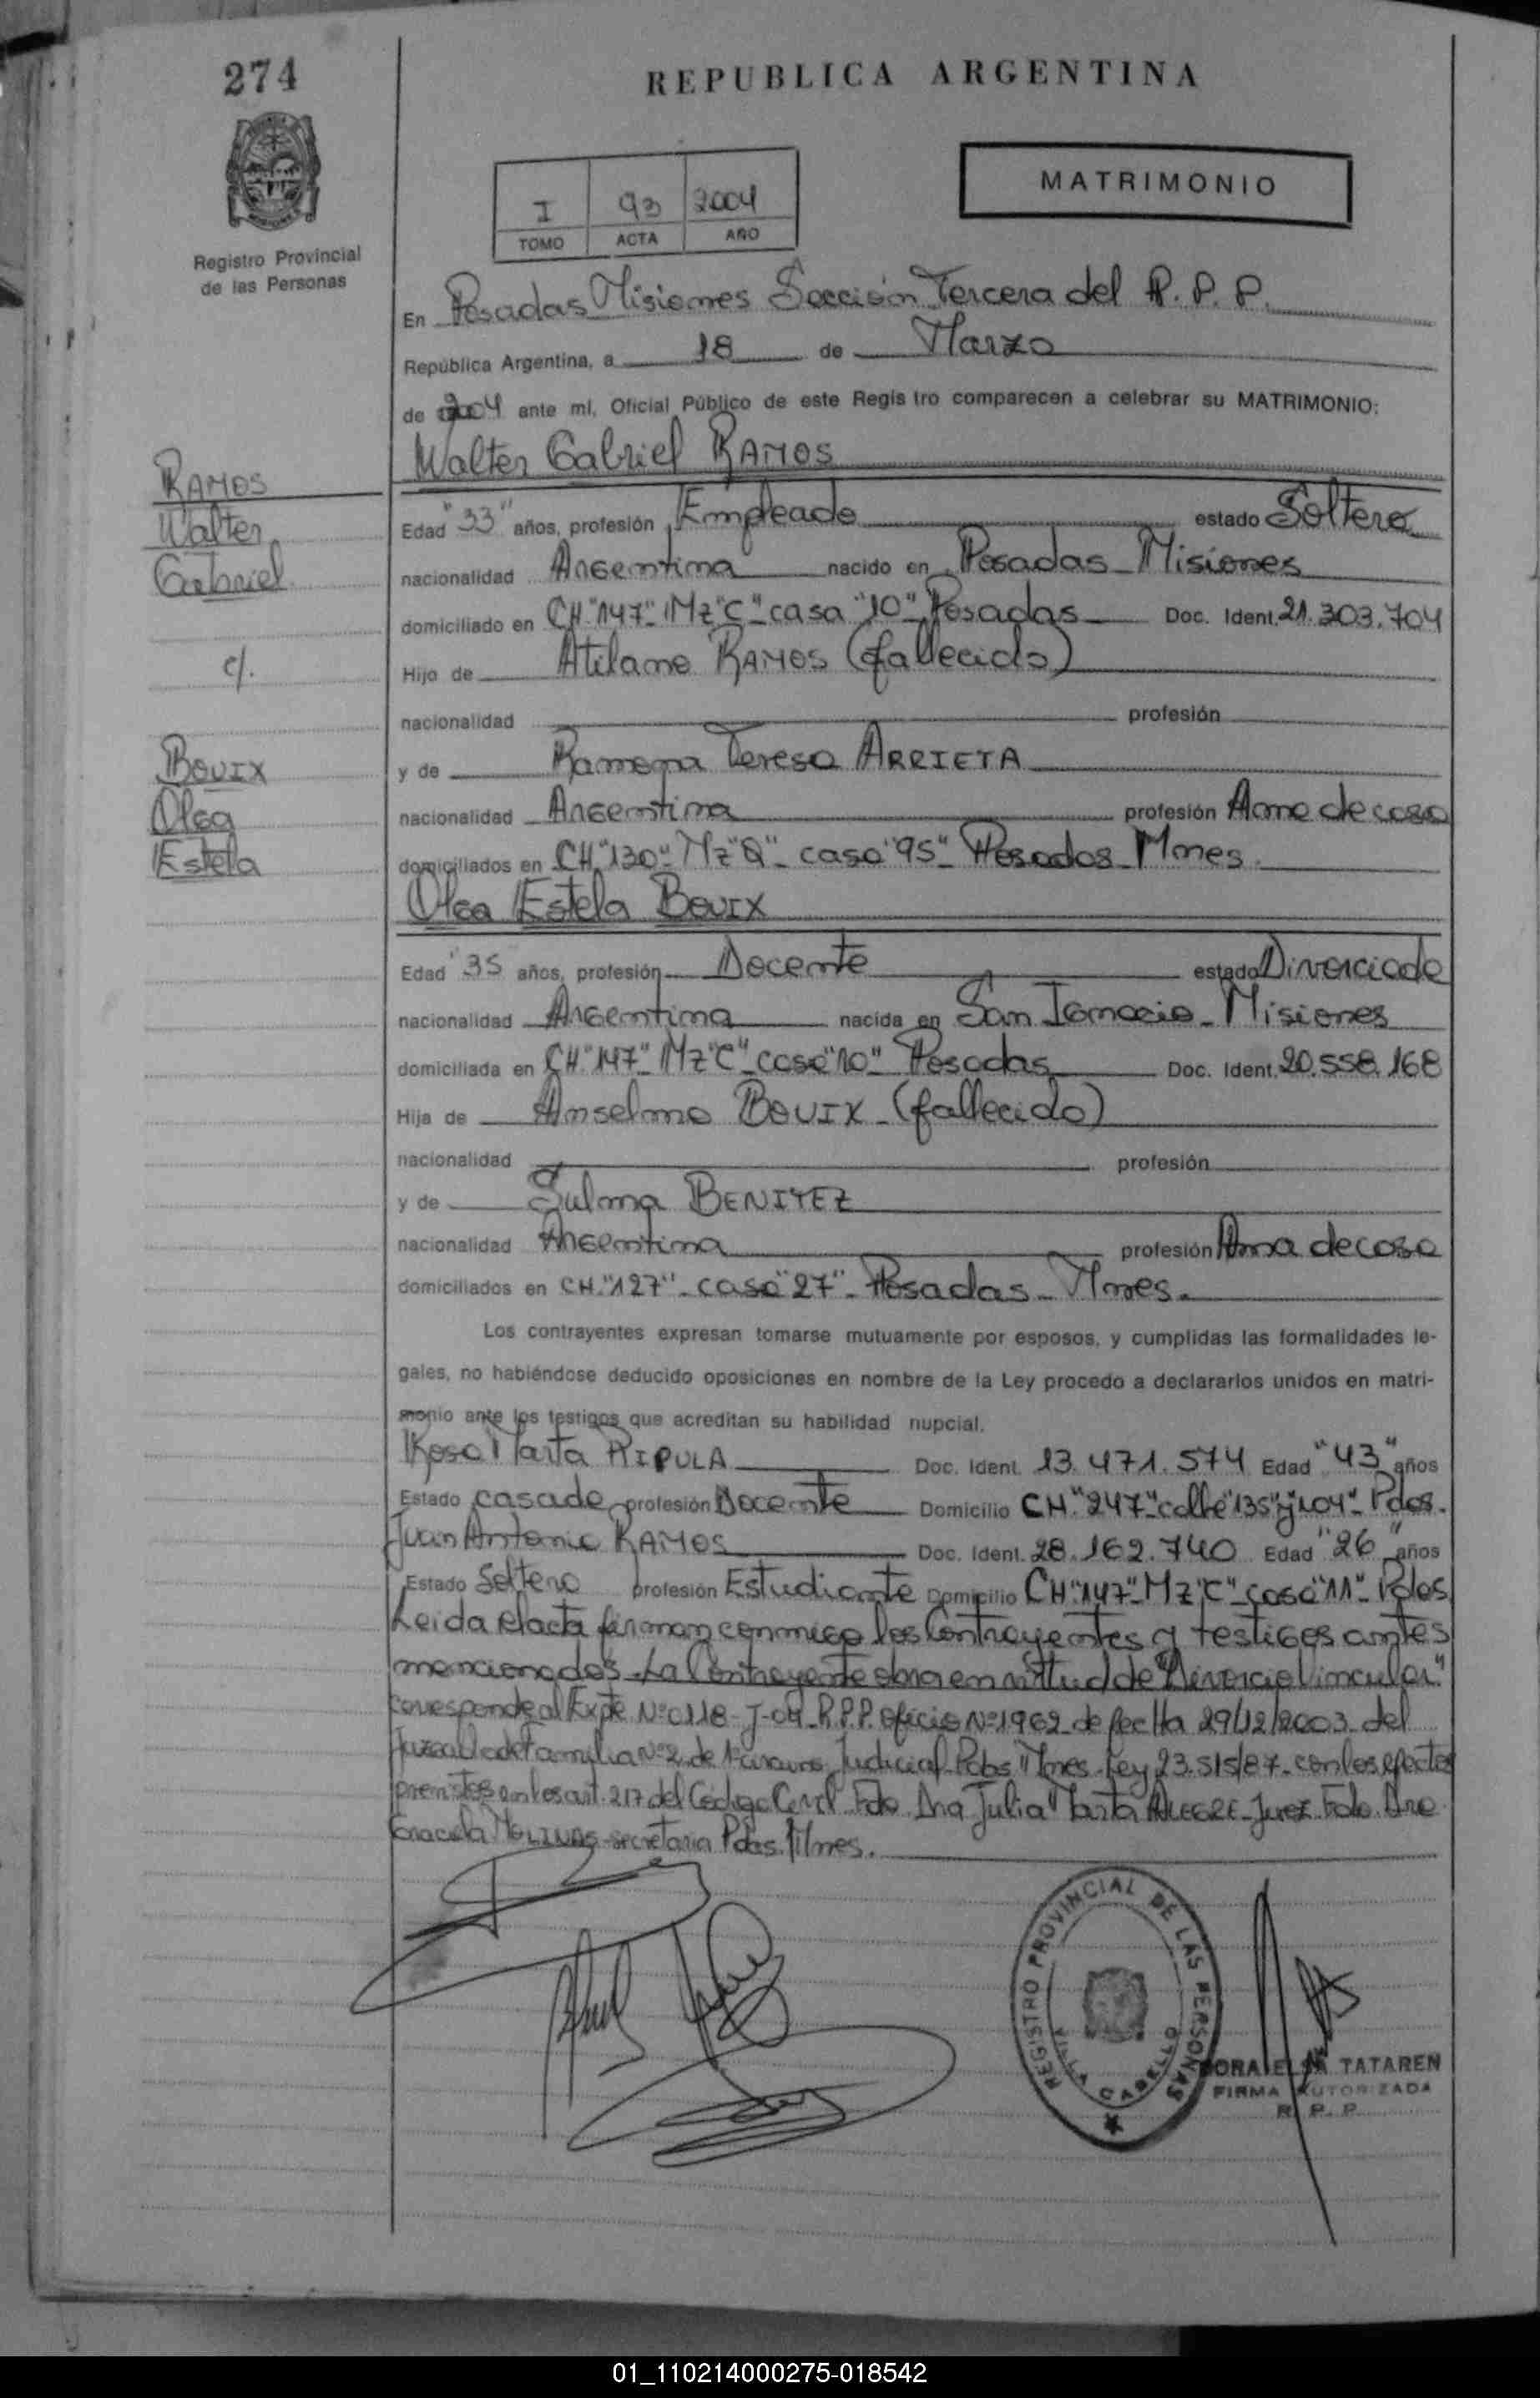 274
REPUBLICA ARGENTINA
Registro Provincial
de las Personas
I 93 2004
TOMO ACTA AÑO
MATRIMONIO
En Posadas Misiones Sección Tercera del R.P.P.
República Argentina, a 18 de Marzo
de 2004 ante mí, Oficial Público de este Regis tro comparecen a celebrar su MATRIMONIO:
Walter Gabriel RAMOS
RAMOS
Walter
Gabriel
c/.
BOUIX
Olga
Estela
Edad "33" años, profesión Empleado estado Soltero
nacionalidad Argentina nacido en Posadas - Misiones
domiciliado en CH "147" - Mz "C" - casa "10" - Posadas Doc. Ident. 21.303.704
Hijo de Atilano RAMOS (fallecido)
nacionalidad profesión
y de Ramona Teresa ARRIETA
nacionalidad Argentina profesión Ama de casa
domiciliados en CH "130" - Mz "Q" - casa "95" - Posadas - Mnes.
Olga Estela BOUIX
Edad "35 años, profesión Docente estado Divorciada
nacionalidad Argentina nacida en San Ignacio - Misiones
domiciliada en CH "147" - Mz "C" - casa "10" - Posadas Doc. Ident. 20.558.168
Hija de Anselmo BOUIX - (fallecido)
nacionalidad profesión
y de Sulma BENITEZ
nacionalidad Argentina profesión Ama de casa
domiciliados en CH. "127" - casa "27" - Posadas - Mnes.
Los contrayentes expresan tomarse mutuamente por esposos, y cumplidas las formalidades le-
gales, no habiéndose deducido oposiciones en nombre de la Ley procedo a declararlos unidos en matri-
monio ante los testigos que acreditan su habilidad nupcial.
Rosa Marta RIPULA Doc. Ident. 13.471.574 Edad "43" años
Estado casada profesión Docente Domicilio CH. "247" - calle "135" y 104" - Pdas.
Juan Antonio RAMOS Doc. Ident. 28.162.740 Edad "26" años
Estado Soltero profesión Estudiante Domicilio CH "147" - Mz "C" - casa "11" - Pdas
Leida el acta firman conmigo los Contrayentes y testigos antes
mencionados - La Contrayente obra en virtud de "Divorcio Vincular"
corresponde al Expte Nº 0118 - J-04 - R.P.P. Oficio Nº 1962 de fecha 29/12/2003 del
Juzgado de Familia Nº 2 de Judicial Pdas Mnes - Ley 23.515/87 - con los efectos
previstos en los art. 217 del Código Civil Fdo Dra Julia Marta ALEGRE - Juez Fdo. Dra
Graciela MOLINAS - secretaria Pdas. Mnes.
REGISTRO PROVINCIAL DE LAS PERSONAS
VILLA CABELLO
DORA ELSA TATAREN
FIRMA AUTORIZADA
R. P. P.
01_110214000275-018542